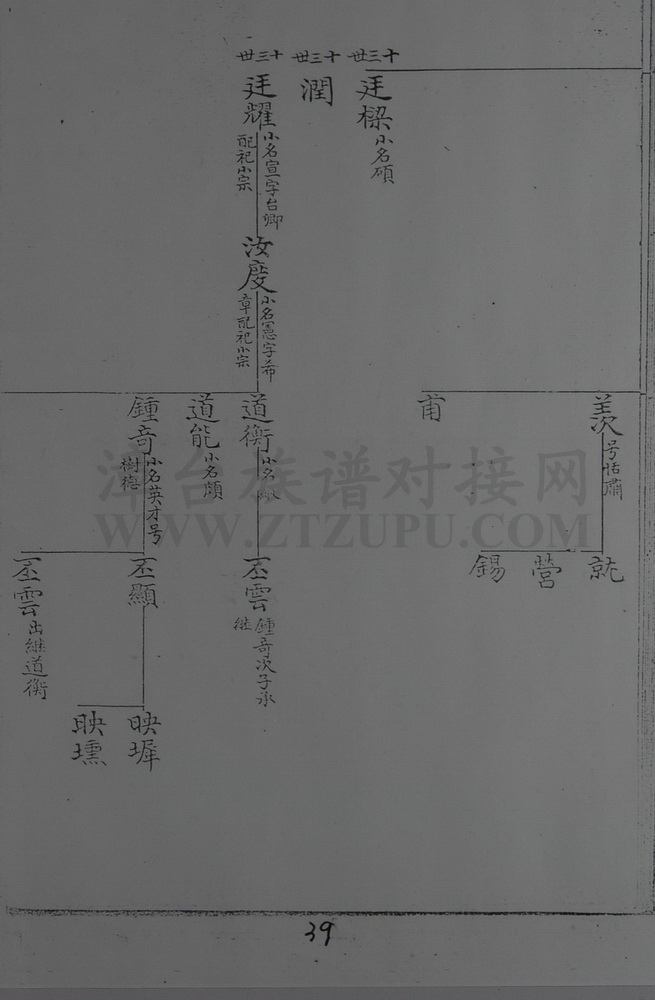 十三世
廷樑
小名碩
十三世
潤
十三世
廷耀
小名宣字台卿
配祀小宗
汝慶
小名憲字希
章配祀小宗
羨
号恬肅
甫
道衡
小名
道能
小名頗
鍾奇
小名英才号
樹德
就
營
錫
丕雲
鍾奇次子承
継
丕顯
丕雲
出継道衡
映墀
映壎
泽台族谱对接网
WWW.ZTZUPU.COM
39